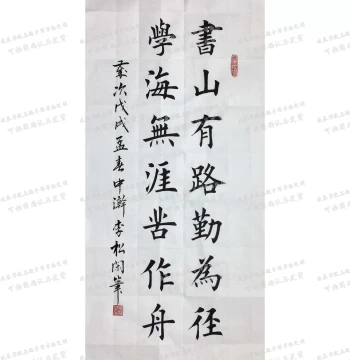 書山有路勤為徑
學海無涯苦作舟
歲次戊戌孟春中瀚李松閣筆